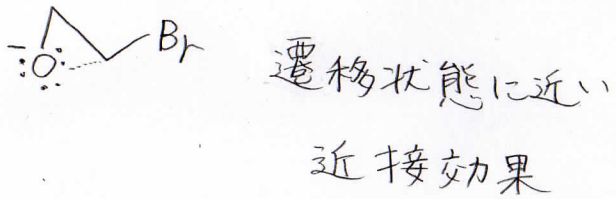 Br
:O:
遷移状態に近い
近接効果